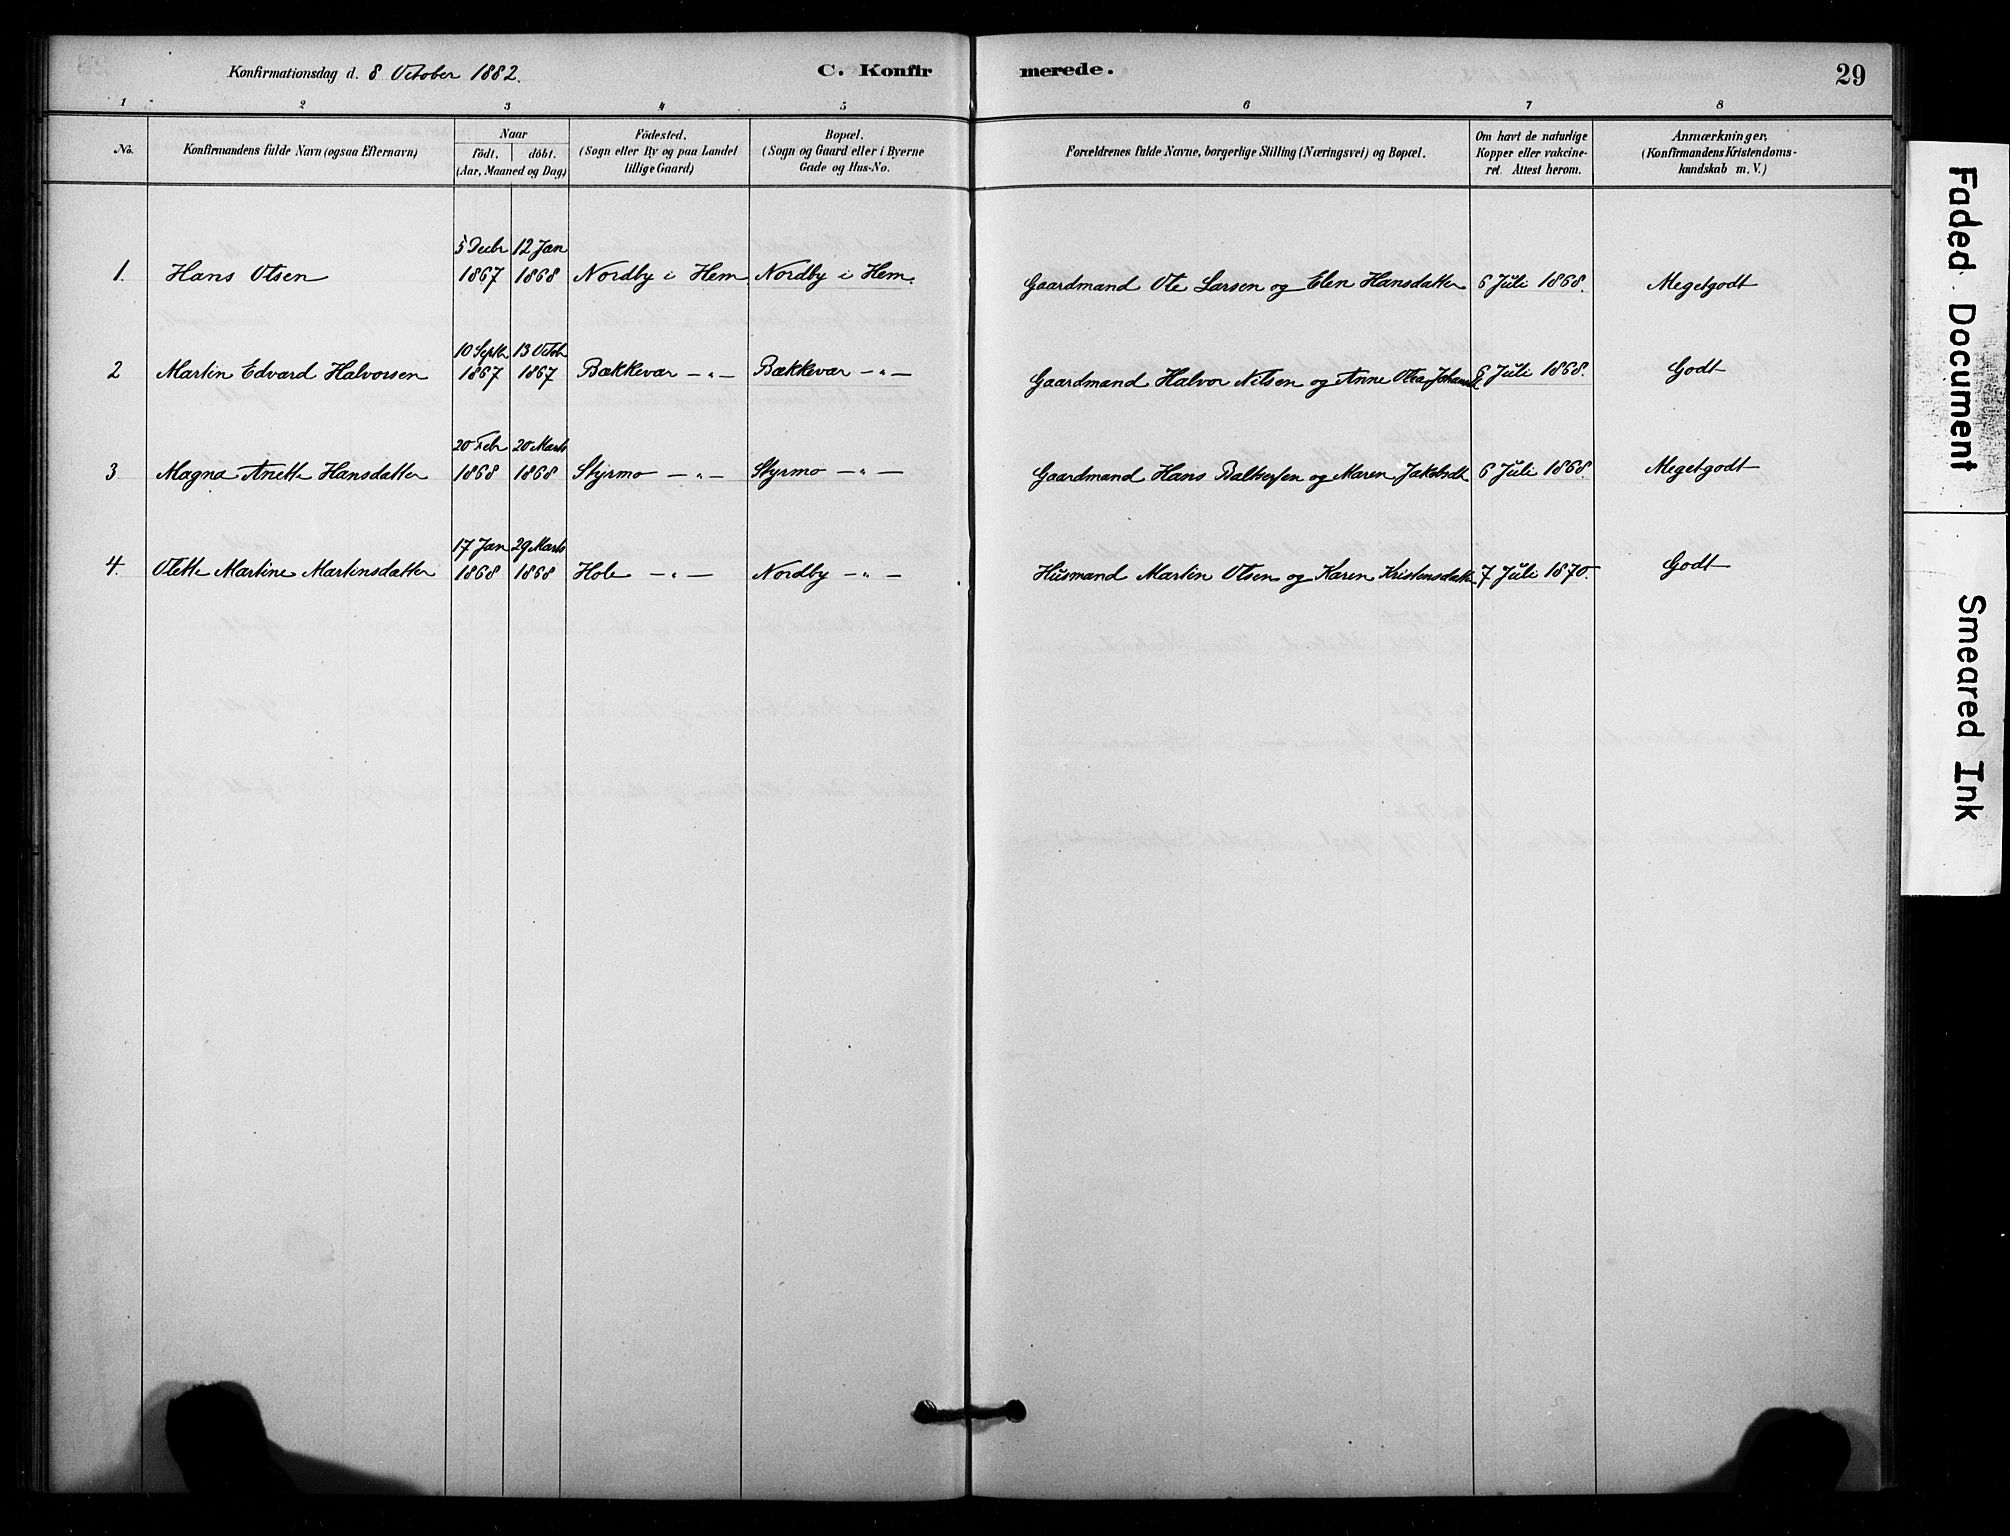 Konfirmationsdag d. 8 October 1882.
C. Konfirmerede.
29
1 2 3 4 5 6 7 8
No.
Konfirmandens fulde Navn (ogsaa Efternavn)
Naar
födt. döbt.
(Aar, Maaned og Dag)
Födested.
(Sogn eller By og paa Landet
tillige Gaard)
Bopæl.
(Sogn og Gaard eller i Byerne
Gade og Hus-No.
Forældrenes fulde Navne, borgerlige Stilling (Næringsvei) og Bopæl.
Om havt de naturlige
Kopper eller vakcine-
ret. Attest herom.
Anmærkninger.
(Konfirmandens Kristendoms-
kundskab m. V.)
5 Decbr 12 Jan
1. Hans Olsen 1867 1868 Nordby i Hem Nordby i Hem. Gaardmand Ole Larsen og Elen Hansdatter 6 Juli 1868. Megetgodt
10 Septbr 13 Octob
2 Martin Edvard Halvorsen 1867 1867 Bækkevar — „ — Bækkevar — „ — Gaardmand Halvor Nilsen og Anne Olea Johansdt 6 Juli 1868. Godt
20 Febr 20 Marts
3 Magna Anette Hansdatter 1868 1868 Styrmo — „ — Styrmo — „ — Gaardmand Hans Baltsersen og Maren Jakobsdt 6 Juli 1868. Megetgodt
17 Jan 29 Marts
4. Olette Martine Martinsdatter 1868 1868 Hole — „ — Nordby — „ — Husmand Martin Olsen og Karen Kristensdatter 7 Juli 1870. Godt
Faded Document
Smeared Ink